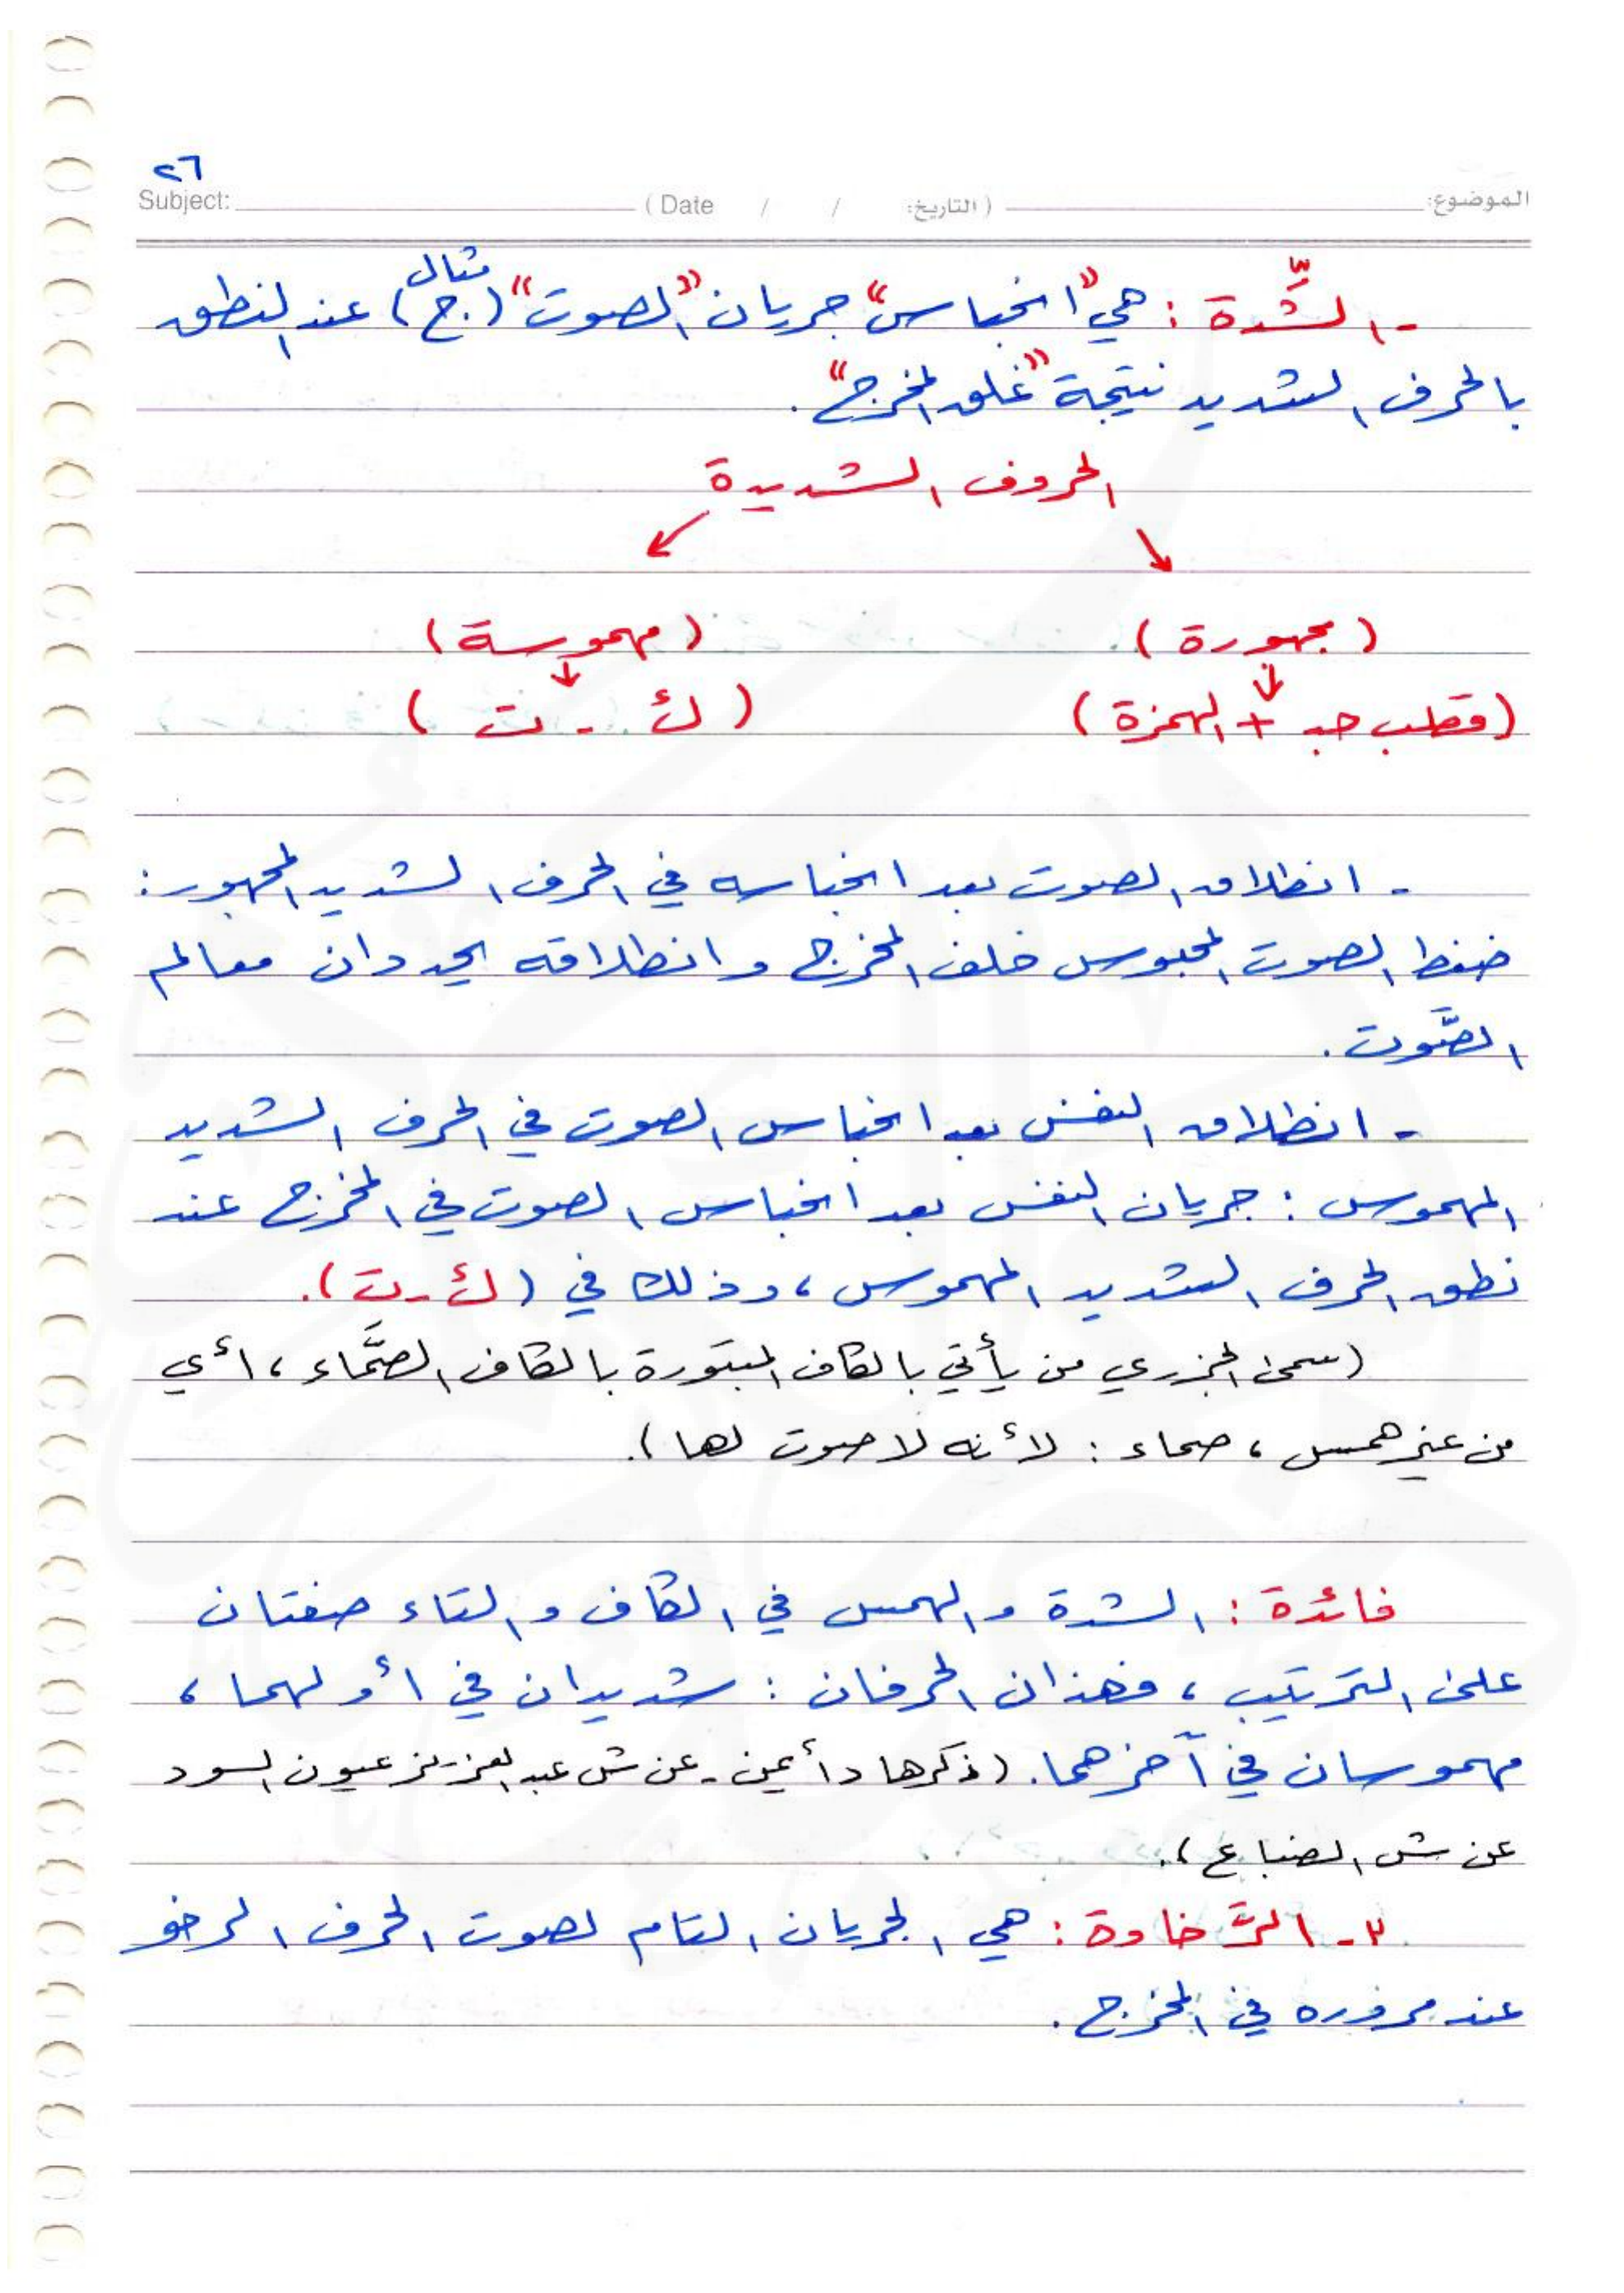 ٢٦
Subject: ( Date / / التاريخ: ) الموضوع:
مثال
- الشِّدة : هي "انحباس" جريان "الصوت" (ج) عند النطق
بالحرف الشديد نتيجة "غلق المخرج".
الحروف الشديدة
(مجهورة) (مهموسة)
(قطب جد + الهمزة) (ك - ت)
- انطلاق الصوت بعد انحباسه في الحرف الشديد المجهور:
ضغط الصوت المحبوس خلف المخرج وانطلاقه يحددان معالم
الصَّوت.
- انطلاق النفس بعد انحباس الصوت في الحرف الشديد
المهموس : جريان النفس بعد انحباس الصوت في المخرج عند
نطق الحرف الشديد المهموس، وذلك في (ك - ت).
(سمى الجزري من يأتي بالكاف المبتورة بالكاف الصمَّاء، أي
من غير همس، صماء : لأنه لا صوت لها).
فائدة : الشدة والهمس في الكاف والتاء صفتان
على الترتيب، فهذان الحرفان : شديدان في أولهما،
مهموسان في آخرهما. (ذكرها د أيمن - عن ش عبد العزيز عيون السود
عن ش الضباع).
٢- الرَّخاوة : هي الجريان التام لصوت الحرف الرخو
عند مروره في المخرج.